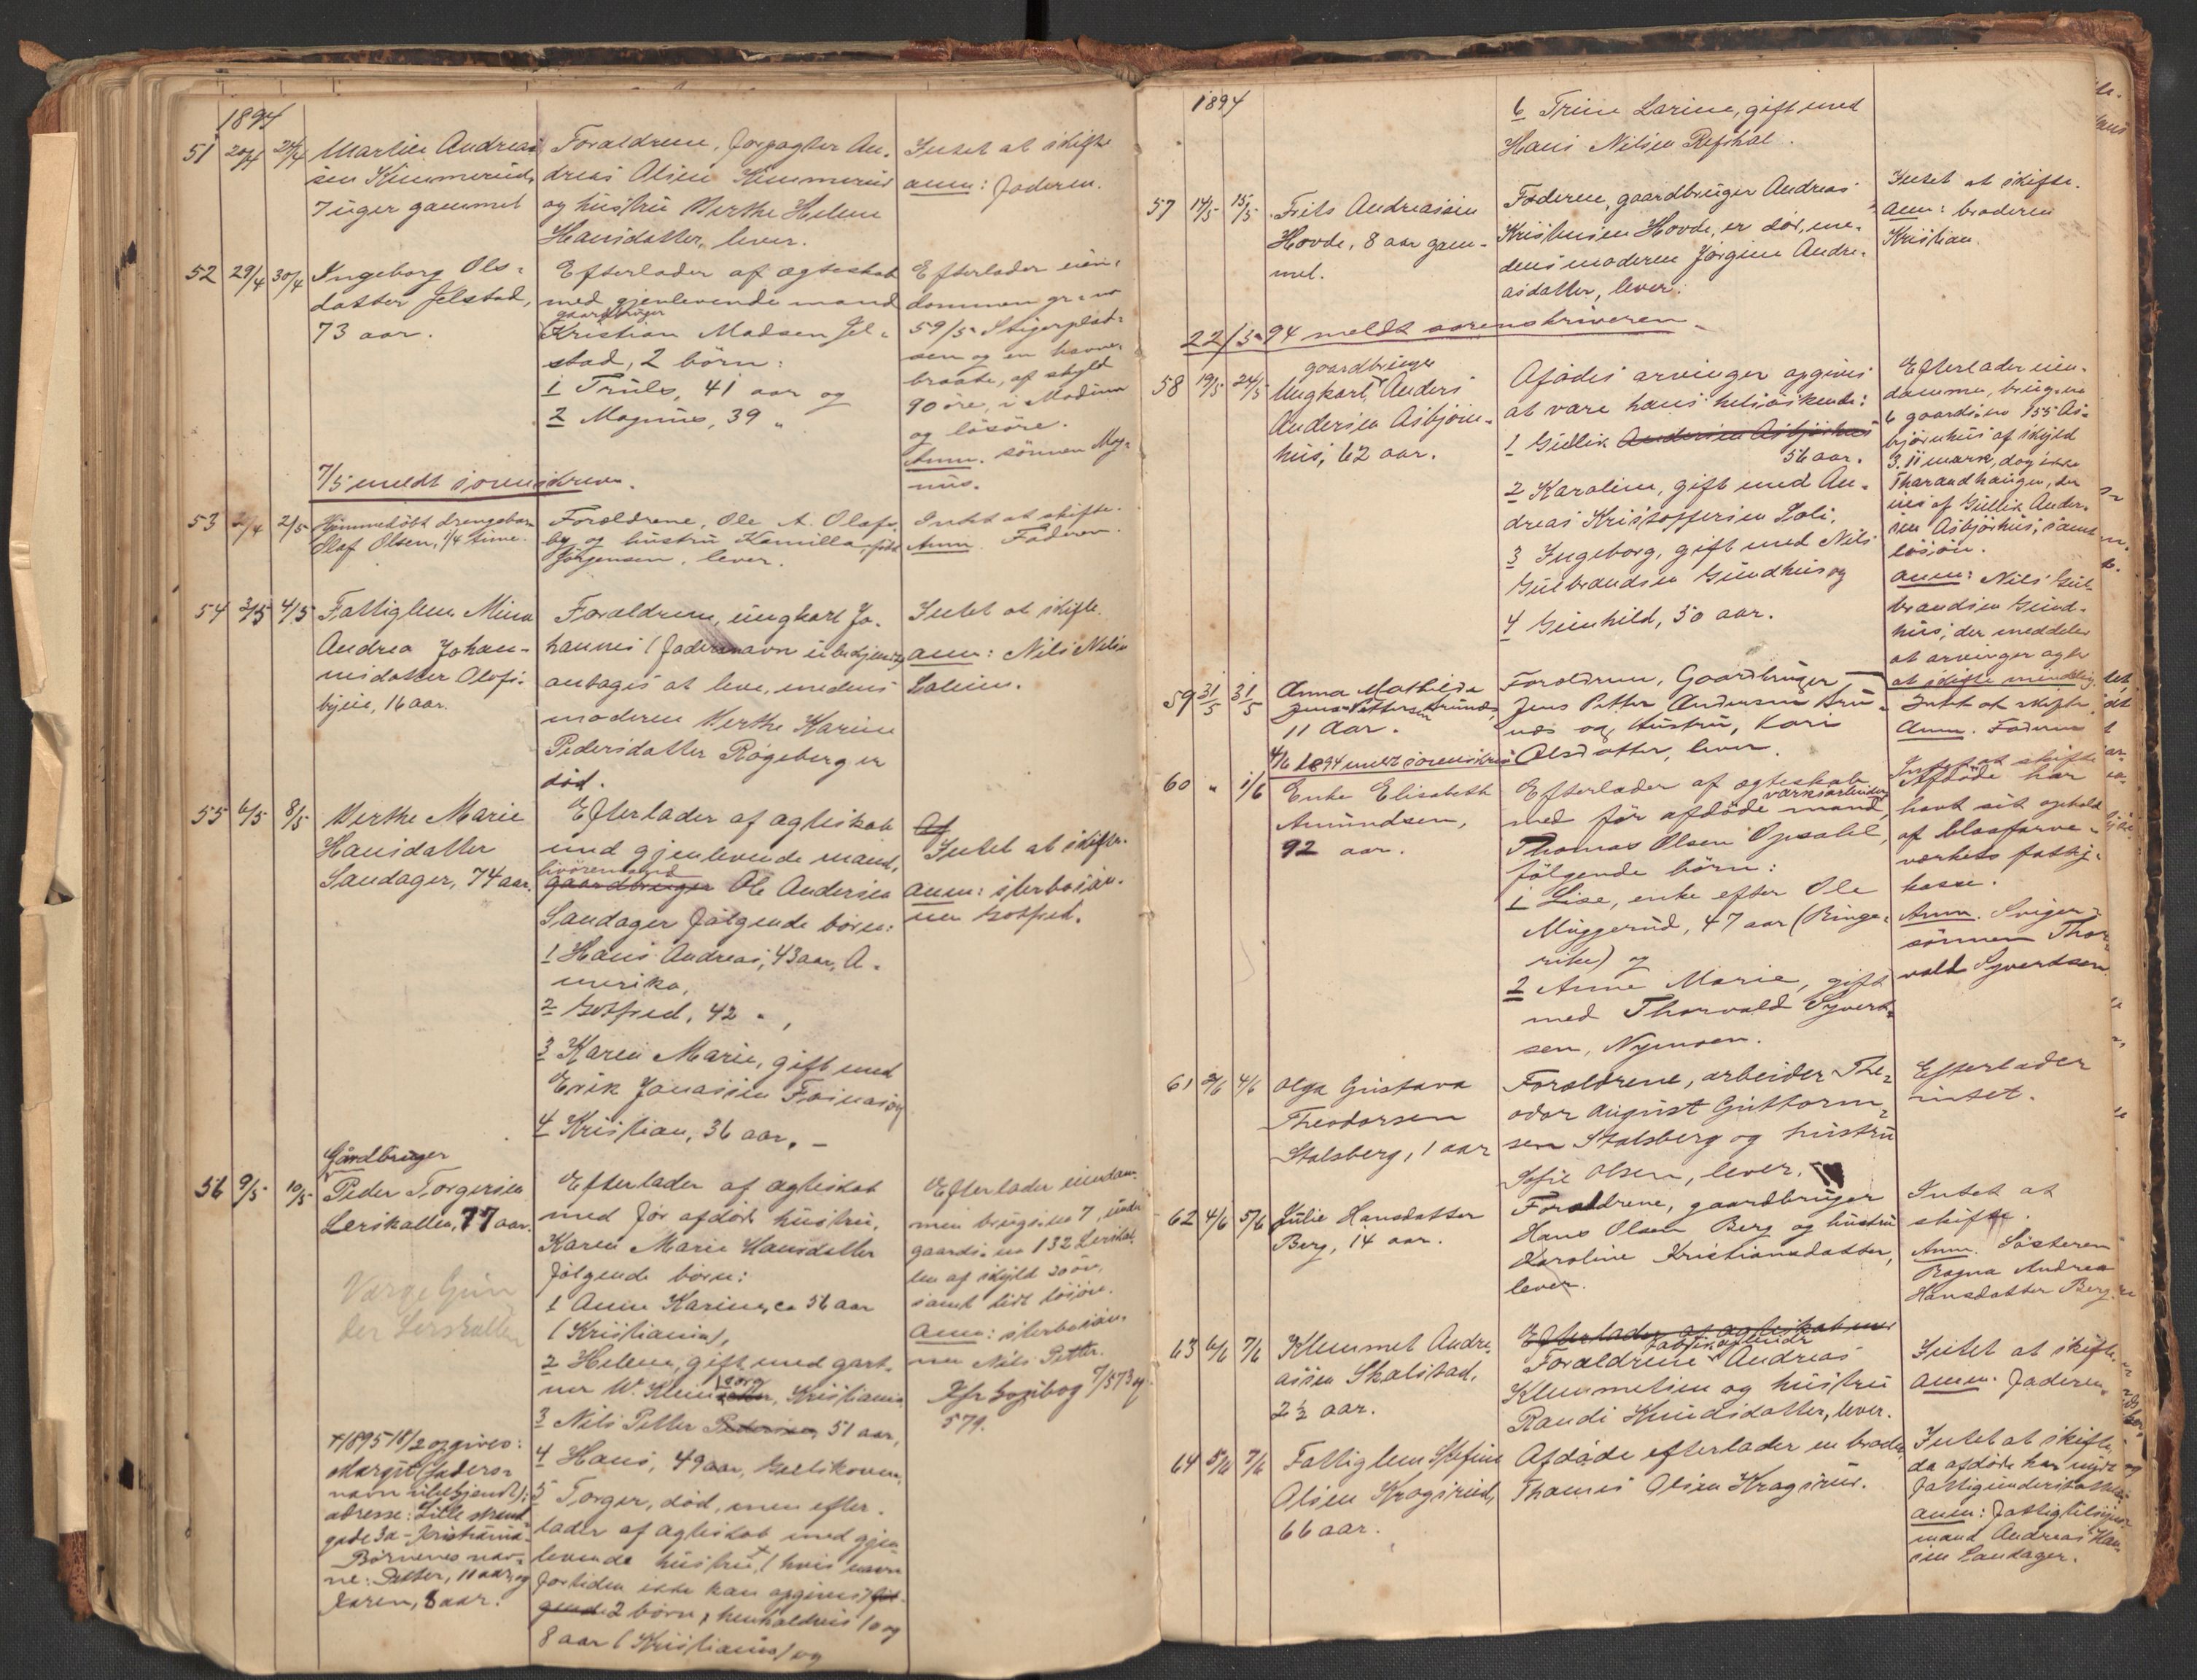 1894
51 20/4 24/4 Martin Andrea-
sen Kimmerud,
7 uger gammel
Forældrene, forpagter An-
dreas Olsen Kimmerud
og hustru Berthe Helene
Hansdatter, lever.
Intet at skifte
Anm: Faderen.
52 29/4 30/4 Ingeborg Ols-
datter Jelstad,
73 aar.
Efterlader af ægteskab
med gjenlevende mand
gaardbruger
Kristian Madsen Jel-
stad, 2 børn:
1 Truls, 41 aar og
2 Magnus, 39 "
Efterlader eien-
dommen gr. no
59/5 Stigerplad-
sen og en havne-
braate, af skyld
90 øre, i Modum
og løsøre.
Anm. sønnen Mag-
nus.
7/5 meldt sorenskriver.
53 2/4 2/5 Hjemmedøbt drengebarn
Olaf Olsen, 1/4 time.
Forældrene, Ole A. Olafs-
by og hustru Kamilla, født
Jørgensen, lever.
Intet at skifte.
Anm. Faderen.
54 3/5 4/5 Fattiglem Mina
Andrea Johan-
nesdatter Olafs-
byeie, 16 aar.
Forældrene, ungkarl Jo-
hannes (Fadersnavn ubekjendt)
antages at leve, medens
moderen Berthe Karine
Pedersdatter Røgeberg er
død.
Intet at skifte.
Anm: Nils Nilsen
55 6/5 8/5 Berthe Marie
Hansdatter
Sandager, 74 aar.
Efterlader af ægteskab
med gjenlevende mand,
livørensmand
gaardbruger Ole Andersen
Sandager følgende børn:
1 Hans Andreas, 43 aar, A-
merika,
2 Gotfred, 42 " ,
3 Karen Marie, gift med
Erik Jonassen Fosnas og
4 Kristian, 36 aar. -
Af
Intet at skifte.
Anm: sterbosøn-
nen Gotfred.
Gårdbruger
56 9/5 10/5 Peder Torgersen
Lerskallen, 77 aar.
Værge Gun
der Lerskallen
+ 1895 18/2 opgives:
Margit (faders-
navn ubekjendt);
adresse: Lille strand
gade 3a - Kristiania-
Børnenes nav-
ne: Petter, 11 aar, og
Karen, 8 aar.
Efterlader af ægteskab
med før afdøde hustru,
Karen Marie Hansdatter
følgende børn:
1 Anne Karine, ca 56 aar
(Kristiania),
2 Helene, gift med gart-
ner W. Kleins borg, Kristiania
3 Nils Petter Pedersen, 51 aar,
4 Hans, 49 aar,
5 Torger, død, men efter-
lader af ægteskab med gjen-
levende hustru + (hvis navn
for tiden ikke kan opgives) føl-
gende 2 børn, henholdsvis 10 og
8 aar (Kristiania) og
Efterlader eiendom-
men brugs no 7, under
gaards no 132 Lerskal-
len af skyld 30 øre,
samt lidt løsøre.
Anm: sterbosøn-
nen Nils Petter.
Jfr Kopibog 7/5 73 4
579.
1894
6 Trine Larine, gift med
Hans Nilsen Refskal.
57 14/5 15/5 Frits Andreassen
Hovde, 8 aar gam-
mel.
Faderen, gaardbruger Andreas
Kristensen Hovde, er død, me-
dens moderen Jørgine Andre-
asdatter, lever.
Intet at skifte.
Anm: broderen
Kristian.
22/5-94 meldt sorenskriveren.
gaardbruger
58 19/5 24/5 Ungkarl, Anders
Andersen Asbjørn-
hus, 62 aar.
Afdødes arvinger opgives
at være hans helsøskende:
1 Gullik Andersen Asbjørhus
56 aar.
2 Karoline, gift med An-
dreas Kristoffersen Holi,
3 Ingeborg, gift med Nils
Gulbrandsen Gundhus og
4 Gunhild, 50 aar.
Efterlader eien-
domme, brugs no
6 gaards no 155 As-
bjørnhus af skyld
3.11 mark, dog ikke
Tharandhaugen, der
eies af Gullik Ander-
sen Asbjørhus, samt
løsøre.
Anm: Nils Gul-
brandsen Gund-
hus, der meddeler
at arvinger agter
at skifte mindelig.
59 31/5 31/5 Anna Mathilde
Jens Pettersen Brunæs,
11 Aar.
Forældrene, Gaardbruger
Jens Petter Andersen Bru-
næs og Hustru, Kari
Olsdatter, lever.
Intet at skifte.
Anm. Faderen
4/6 1894 meldt sorenskriv.
60 " 1/6 Enke Elisabeth
Amundsen,
92 aar.
Efterlader af ægteskab
værksarbeider
med før afdøde mand,
Thomas Olsen Opsahl,
følgende børn:
1 Lise, enke efter Ole
Muggerud, 47 aar (Ringe-
rike) og
2 Anne Marie, gift
med Thorvald Syvert-
sen, Nymoen.
Intet at skifte
Afdøde har
havt sit ophold
af blaafarve-
værkets fattig-
kasse.
Anm. Sviger-
sønnen Thor-
vald Syvertsen
61 2/6 4/6 Olga Gustava
Theodorsen
Stalsberg, 1 aar
Forældrene, arbeider The-
odor August Guttorm-
sen Stalsberg og hustru
Sofie Olsen, lever.
Efterlader
intet.
62 4/6 5/6 Julie Hansdatter
Berg, 14 aar.
Forældrene, gaardbruger
Hans Olsen Berg og hustru
Karoline Kristiansdatter,
lever.
Intet at
skifte.
Anm. Søsteren
Ragna Andrea
Hansdatter Berg.
63 6/6 7/6 Klemmet Andre-
assen Skalstad,
2 1/2 aar.
Efterlader af ægteskab med
Fabrikarbeider
Forældrene Andreas
Klemmetsen og hustru
Randi Knudsdatter, lever.
Intet at skifte.
Anm. Faderen.
64 5/6 7/6 Fattiglem Stefine
Olsen Kragsrud,
66 aar.
Afdøde efterlader en broder
Thomas Olsen Kragsrud.
Intet at skifte,
da afdøde har nydt
Fattigunderstøttelse
Anm: Fattigtilsyns-
mand Andreas Han-
sen Sandager.